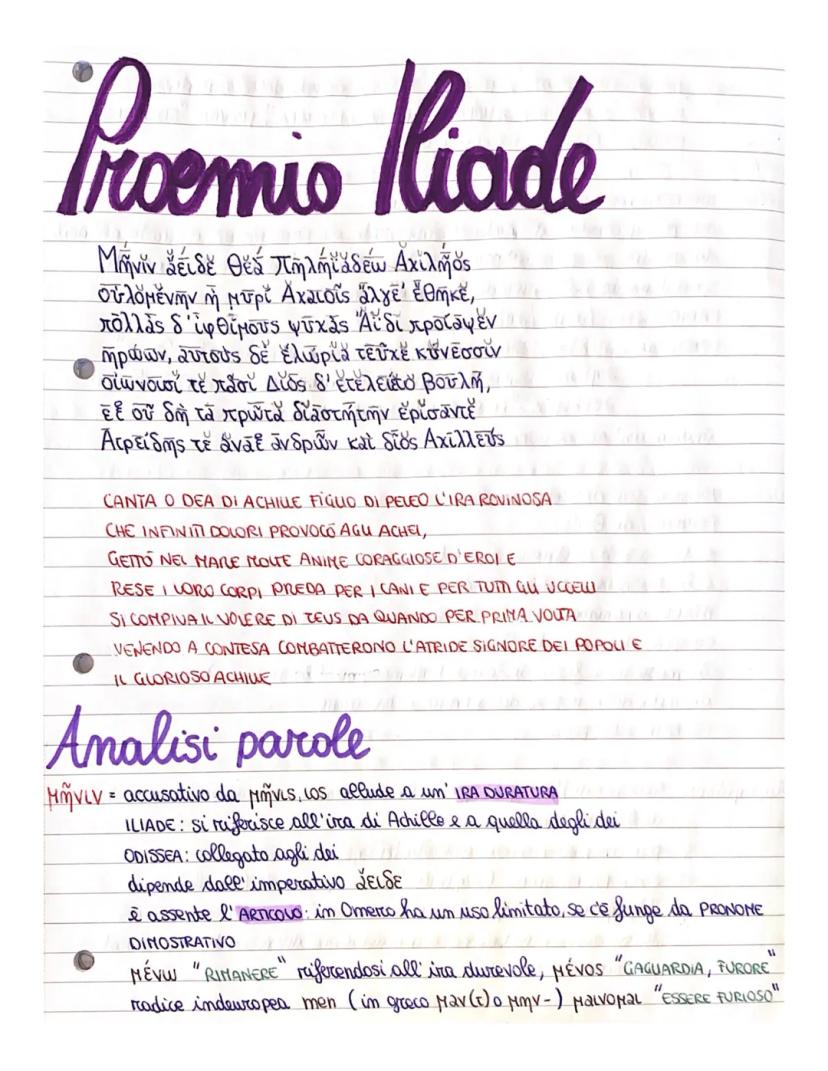 Proemio Iliade
Μῆνιν ἄειδε Θεά Πηληϊάδεω Ἀχιλῆος
οὐλομένην ἣ μυρί Ἀχαιοῖς ἄλγε' ἔθηκε,
πολλὰς δ' ἰφθίμους ψυχὰς Ἄϊδι προΐαψεν
ἡρώων, αὐτοὺς δὲ ἑλώρια τεῦχε κύνεσσιν
οἰωνοῖσί τε πᾶσι Διὸς δ' ἐτελείετο βουλή,
ἐξ οὗ δὴ τὰ πρῶτα διαστήτην ἐρίσαντε
Ἀτρείδης τε ἄναξ ἀνδρῶν καὶ δῖος Ἀχιλλεύς
CANTA O DEA DI ACHILLE FIGLIO DI PELEO L'IRA ROVINOSA
CHE INFINITI DOLORI PROVOCÓ AGLI ACHEI,
GETTÓ NEL MARE MOLTE ANIME CORAGGIOSE D'EROI E
RESE I LORO CORPI PREDA PER I CANI E PER TUTTI GLI UCCELLI
SI COMPIVA IL VOLERE DI ZEUS DA QUANDO PER PRIMA VOLTA
VENENDO A CONTESA COMBATTERONO L'ATRIDE SIGNORE DEI POPOLI E
IL GLORIOSO ACHILLE
Analisi parole
μῆνιν = accusativo da μῆνις, ιος allude a un' IRA DURATURA
ILIADE: si riferisce all'ira di Achille e a quella degli dei
ODISSEA: collegato agli dei
dipende dall' imperativo ἄειδε
è assente l'ARTICOLO: in Omero ha un uso limitato, se c'è funge da PRONOME
DIMOSTRATIVO
μένω "RIMANERE" riferendosi all' ira durevole, μένος "GAGUARDIA, FURORE"
radice indeuropea men (in greco μαν(τ) o μην-) μαίνομαι "ESSERE FURIOSO"